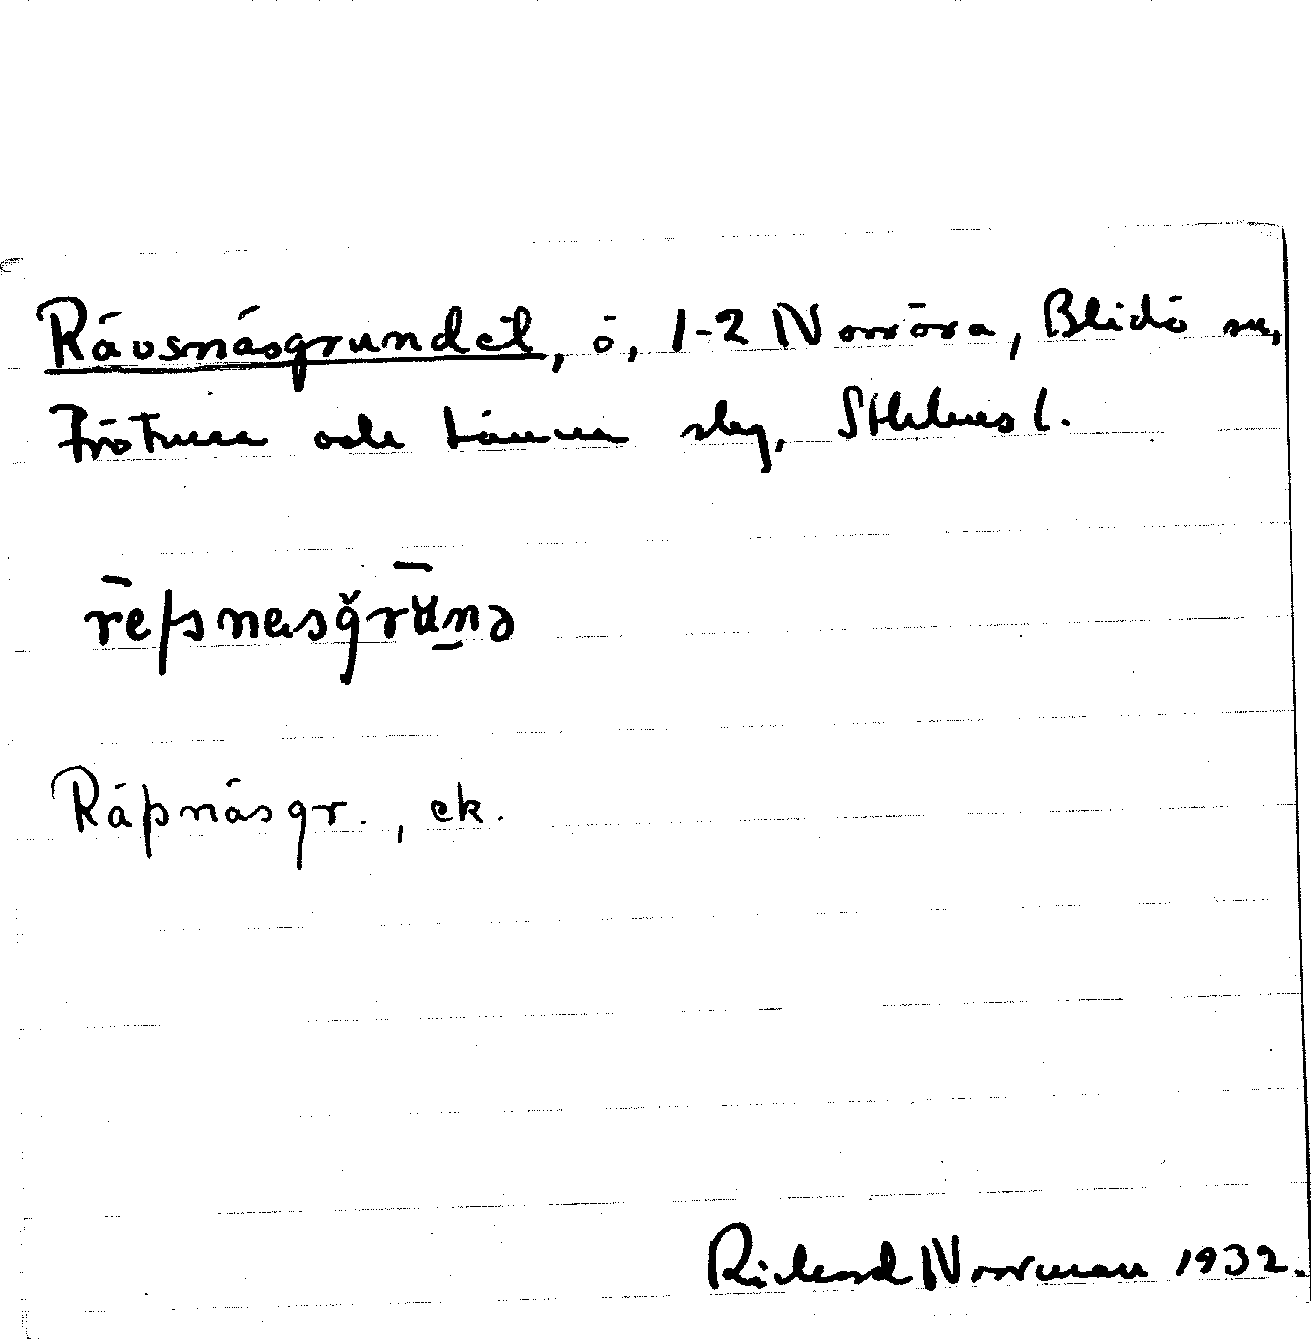 Rävsnäsgrundet, ö, 1-2 Norröra, Blidö sn,
Frötuna och Länna slg, Sthlms l.
Räpnäsgr., ek.
Rickard Norrman 1932.